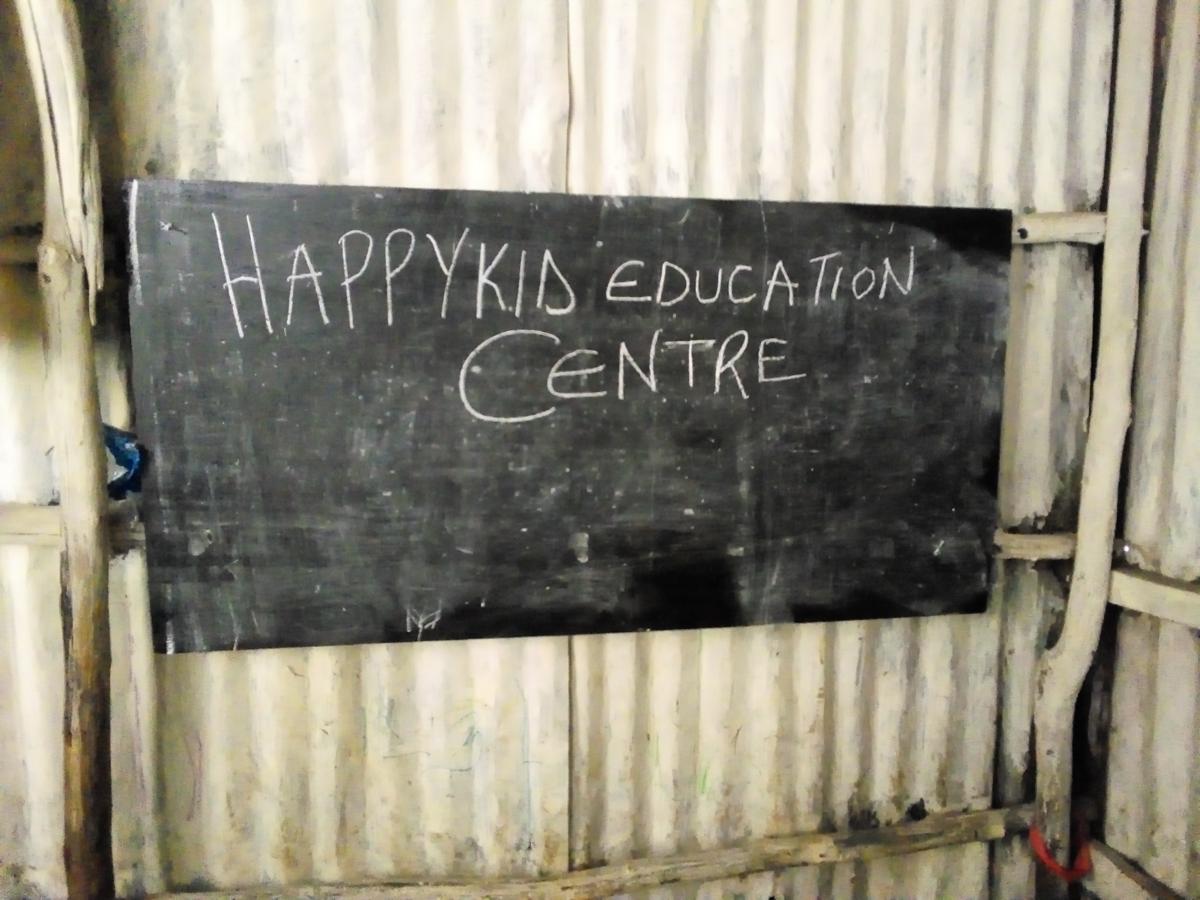 HAPPYKID EDUCATION
CENTRE